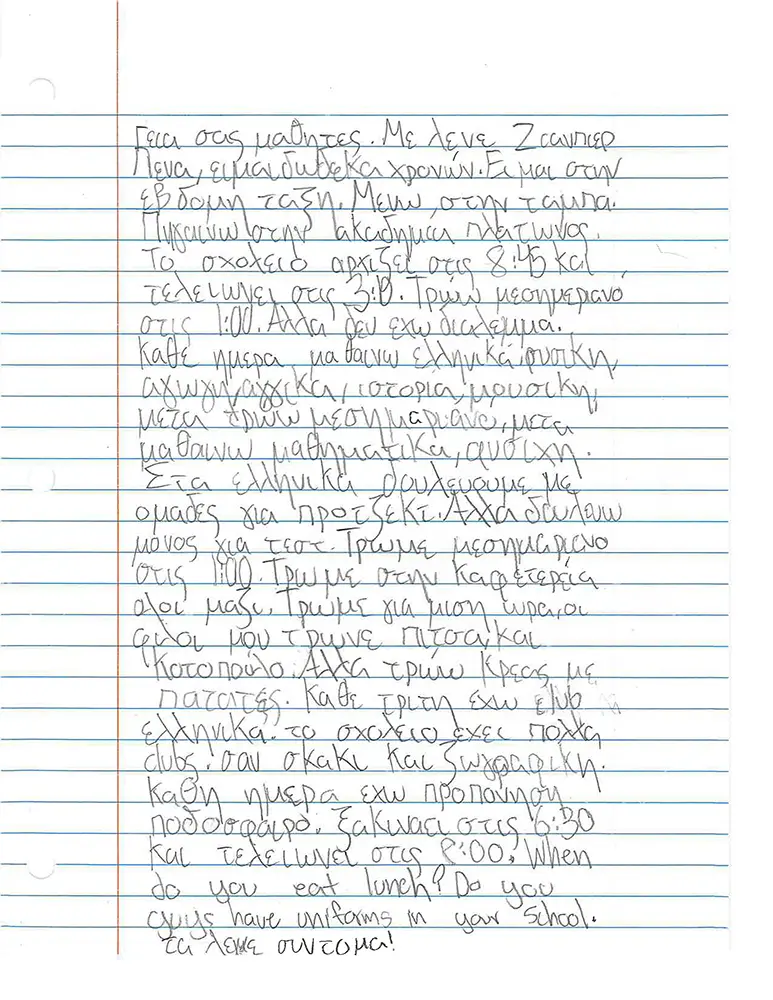 Γεια σας μαθητες. Με λενε Ζιανπιερ
Πενα, ειμαι δωδεκα χρονών. Ει μαι στην
εβδομη ταξη. Μενω στην ταμπα.
Πηγαινω στην ακαδημαι πλατωνος.
Το σχολειο αρχιζει στις 8:45 και
τελειωνει στις Τρώω μεσημεριανό
στις 1:00. Αλλα δεν εχω διαλεμμα.
Καθε ημερα μαθαινω ελληνικά, φυσικη,
αγωγη, αγγικα, ιστορια, μουσικη,
μετα τρώω μεσημαριανο, μετα
μαθαινω μαθηματικα, φυσιχη.
Στα ελληνικά δουλευουμε με
ομαδες για προτζεκτ. Αλλα δουλευω
μόνος για τεστ. Τρωμε μεσημαριανο
στις 1:00. Τρωμε στην καφετερεία
ολοι μαζι. Τρωμε για μιση ωρα, οι
φιλοι μου τρωνε πιτσα και
κοτοπουλο. Αλλα τρώω κρεας με
πατατες. Καθε τριτη εχω club
ελληνικα. το σχολειο εχει πολλα
clubs! σαν σκακι και ζωγραφικη.
καθη ημερα εχω προπονηση
ποδοσφαιρο. ξακιναει στις 6:30
και τελειωνει στις 8:00. When
do you eat lunch? Do you
guys have uniforms in your school.
τα λεμε συντομα!